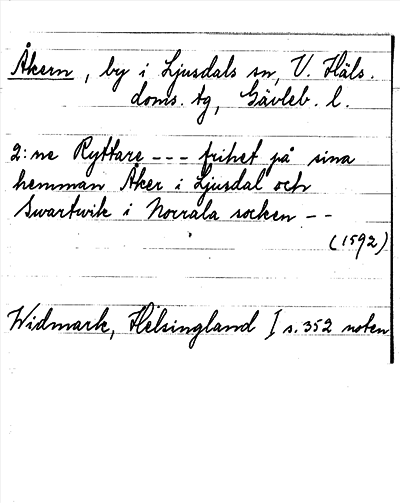 Åkern, by i Ljusdals sn, V. Häls.
doms. tg, Gävleb. l.
2:ne Ryttare --- frihet på sina
hemman Åker i Ljusdal och
Swartwik i Norrala socken --
(1592)
Widmark, Helsingland I s. 352 noten